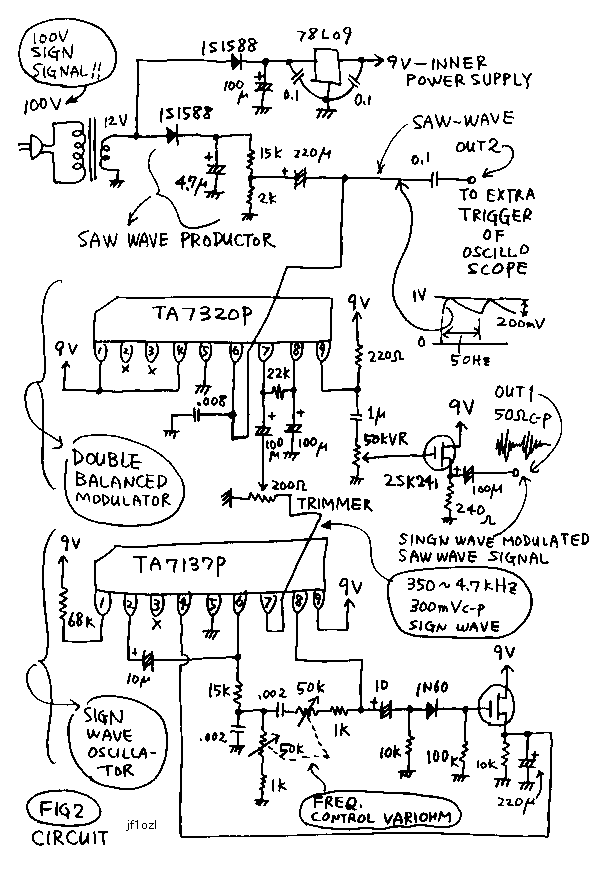 100V
SIGN
SIGNAL!!
100V
12V
1S1588
78L09
100
μ
0.1
0.1
9V-INNER
POWER SUPPLY
1S1588
4.7μ
15K
220μ
2K
SAW-WAVE
0.1
OUT2
TO EXTRA
TRIGGER
OF
OSCILLO
SCOPE
SAW WAVE PRODUCTOR
1V
0
200mV
50HZ
TA7320P
9V
1 2 3 4 5 6 7 8 9
X X
9V
220Ω
22K
.008
100
μ
100μ
1μ
50KVR
9V
2SK241
100μ
240
Ω
OUT1
50Ωc-p
DOUBLE
BALANCED
MODULATOR
200Ω
TRIMMER
SINGN WAVE MODULATED
SAW WAVE SIGNAL
9V
TA7137P
1 2 3 4 5 6 7 8 9
X
9V
68K
350~4.7KHZ
300mVc-p
SIGN WAVE
10μ
15K
.002
50K
1K
.002
50K
1K
10
1N60
9V
10K
100K
10K
220μ
SIGN
WAVE
OSCILLA-
TOR
FREQ.
CONTROL VARIOHM
FIG2
CIRCUIT
jf1ozl